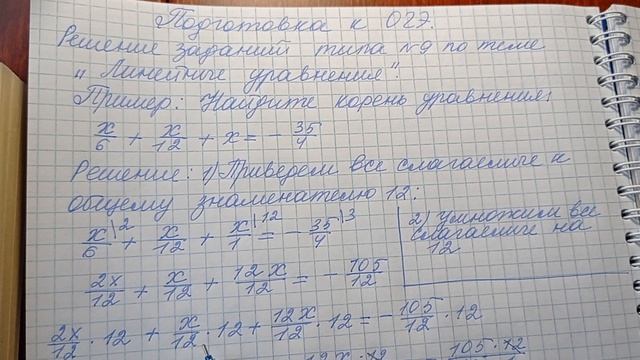 Подготовка к ОГЭ.
Решение заданий типа №9 по теме
„Линейные уравнения".
Пример: Найдите корень уравнения:
x/6 + x/12 + x = - 35/4
Решение: 1) Приведем все слагаемые к
общему знаменателю 12:
x/6 \2 + x/12 + x/1 \12 = - 35/4 \3
2) умножим все
слагаемые на
12
2x/12 + x/12 + 12x/12 = - 105/12
2x/12 · 12 + x/12 · 12 + 12x/12 · 12 = - 105/12 · 12
12x · 12 105 · 12